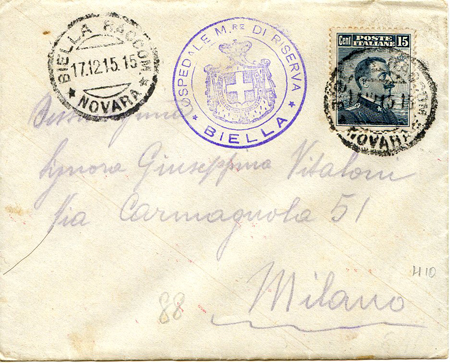 BIELLA RACCOM.
17.12.15.15
* NOVARA *
OSPEDALE M.RE DI RISERVA
* BIELLA *
Cent POSTE ITALIANE 15
NOVARA
Signora Giuseppina Vitaloni
Via Carmagnola 51
Milano
410
88